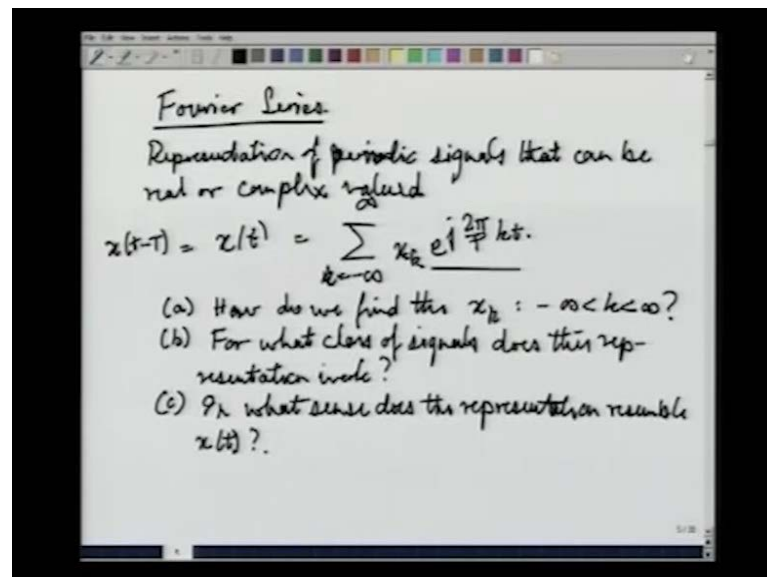 Fourier Series
Representation of periodic signals that can be
real or complex valued
x(t-T) = x(t) = ∑_{k=-∞}^{∞} x_k e^{j 2π/T kt}.
(a) How do we find the x_k : -∞<k<∞?
(b) For what class of signals does this rep-
resentation work?
(c) In what sense does the representation resemble
x(t)?.